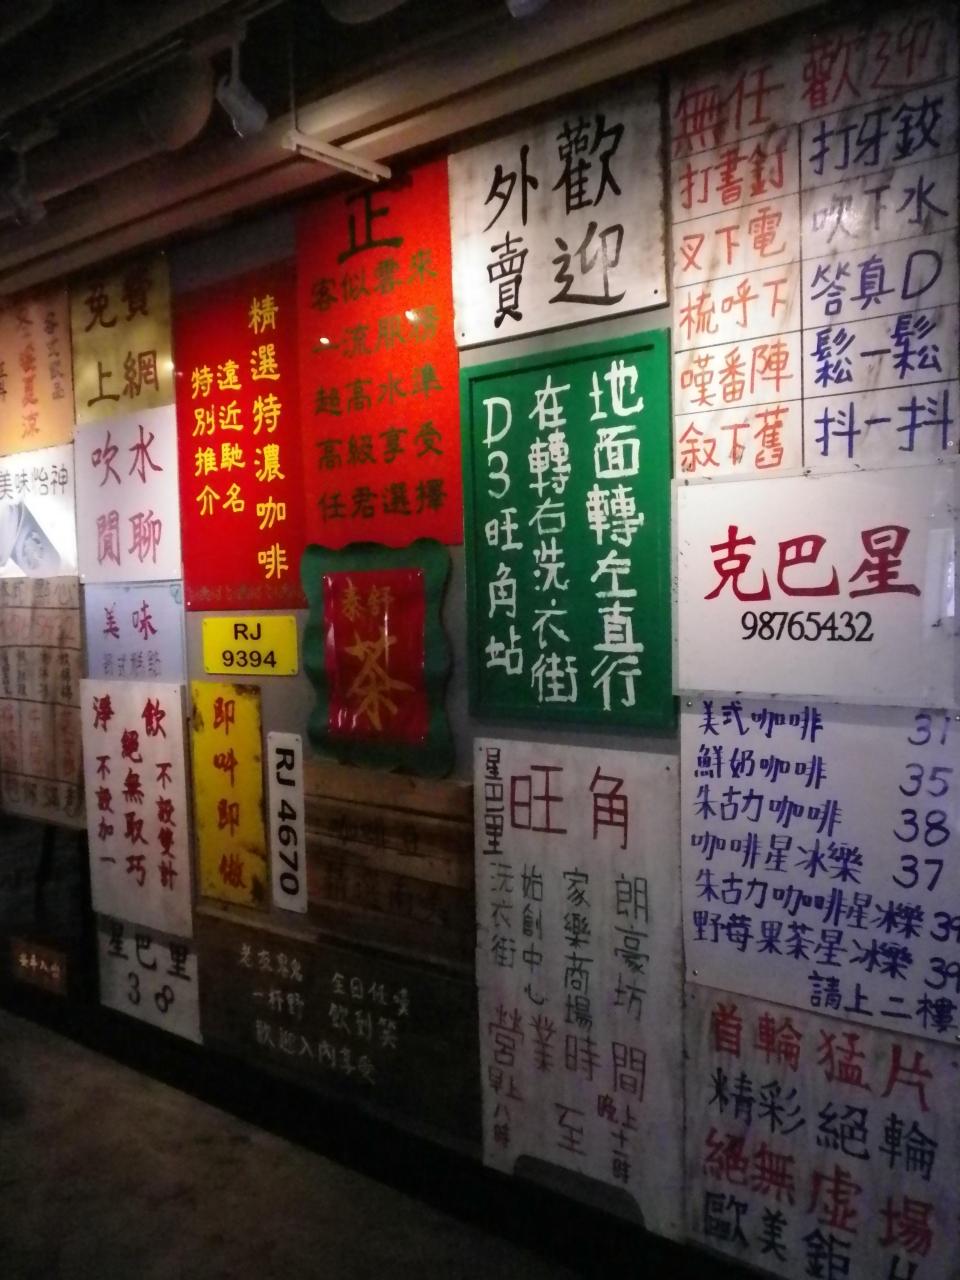 免費
上網
吹水
閒聊
美味怡神
美味
淨飲不設雙計
絕無取巧
不設加一
星巴里
38
精選特濃咖啡
遠近馳名
特別推介
RJ
9394
即叫即做
RJ 4670
正
客似雲來
一流服務
超高水準
高級享受
任君選擇
泰舒
茶
歡迎
外賣
地面轉左直行
在轉右洗衣街
D3旺角站
星巴里
旺角
朗豪坊
家樂商場
始創中心
洗衣街
營業時間
早上八時
至
晚上十一時
全日任嘆
飲到笑
一杯野
歡迎入內享受
無任歡迎
打書釘
打牙鉸
叉下電
吹下水
梳呼下
答真D
嘆番陣
鬆一鬆
叙下舊
抖一抖
克巴星
98765432
美式咖啡 31
鮮奶咖啡 35
朱古力咖啡 38
咖啡星冰樂 37
朱古力咖啡星冰樂 39
野莓果茶星冰樂 39
請上二樓
首輪猛片
精彩絕輪
絕無虛場
歐美鉅